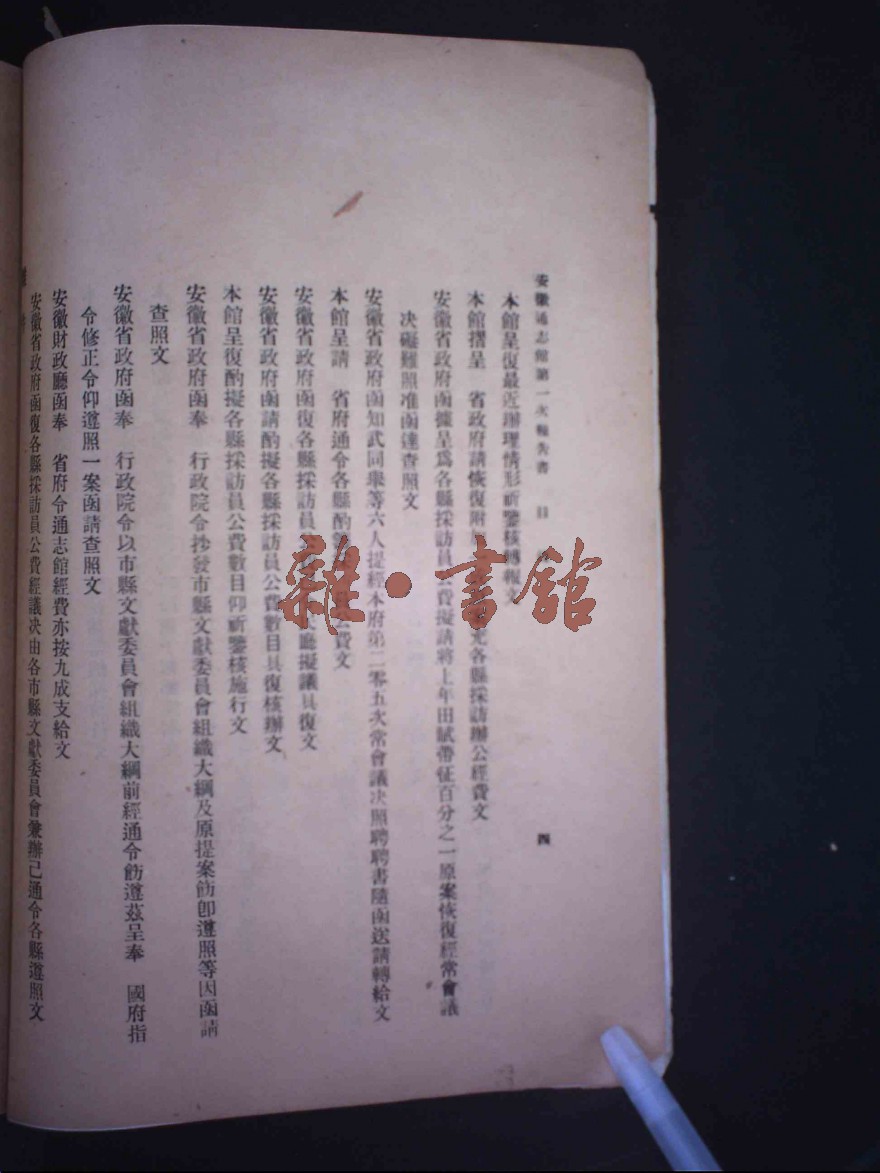 安徽通志館第一次報告書　目
四
本館呈復最近辦理情形祈鑒核轉報文
本館摺呈　省政府請恢復附　各縣採訪辦公經費文
安徽省政府函據呈爲各縣採訪員公費擬請將上年田賦帶征百分之一原案恢復經常會議
决礙難照准函達查照文
安徽省政府函知武同舉等六人提經本府第二零五次常會議决照聘聘書隨函送請轉給文
本館呈請　省府通令各縣酌　公費文
安徽省政府函復各縣採訪員　廳擬議具復文
安徽省政府函請酌擬各縣採訪員公費數目具復核辦文
本館呈復酌擬各縣採訪員公費數目仰祈鑒核施行文
安徽省政府函奉　行政院令抄發市縣文獻委員會組織大綱及原提案飭卽遵照等因函請
查照文
安徽省政府函奉　行政院令以市縣文獻委員會組織大綱前經通令飭遵茲呈奉　國府指
令修正令仰遵照一案函請查照文
安徽財政廳函奉　省府令通志館經費亦按九成支給文
安徽省政府函復各縣採訪員公費經議决由各市縣文獻委員會兼辦已通令各縣遵照文
雜·書館